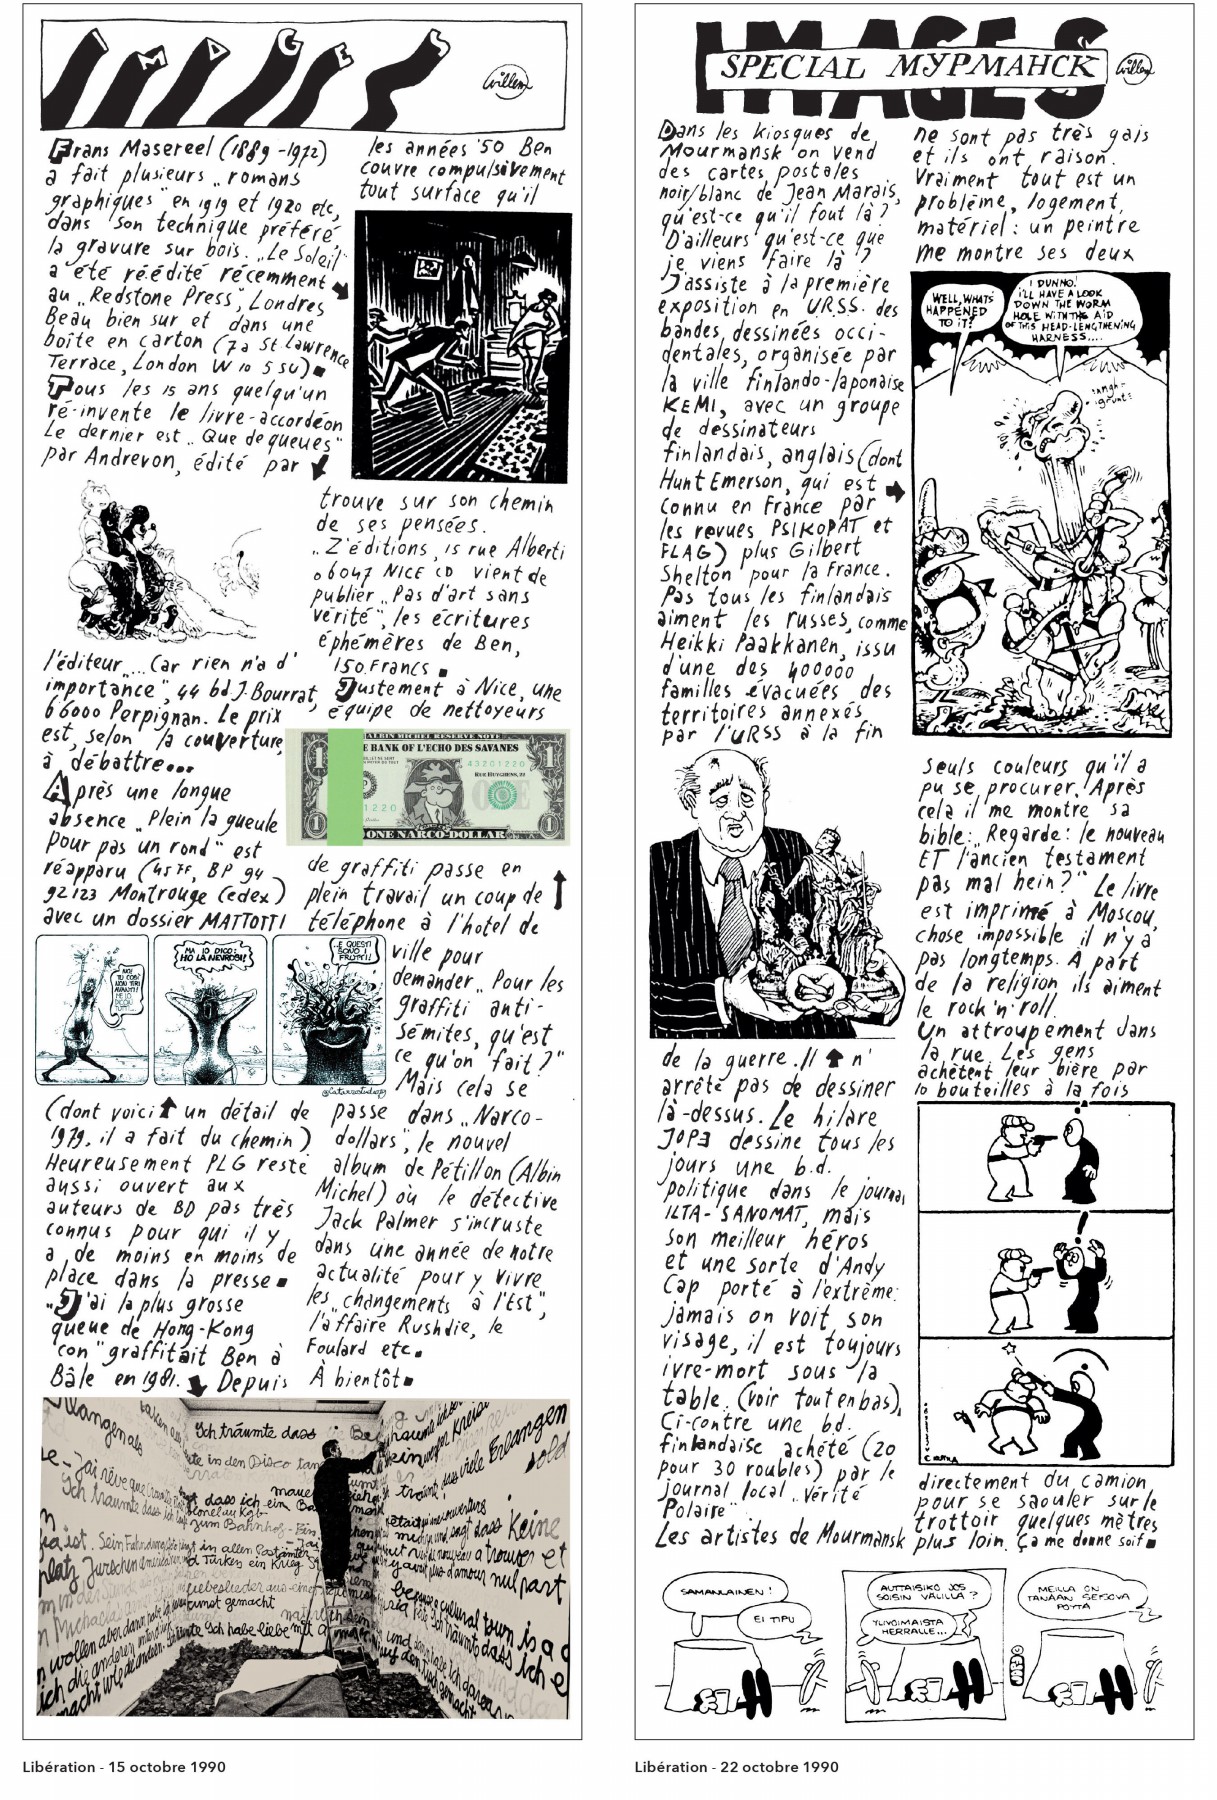 IMAGES
willem
Frans Masereel (1889-1972)
a fait plusieurs „romans
graphiques" en 1919 et 1920 etc,
dans son technique préféré,
la gravure sur bois. „Le Soleil"
a été réédité récemment
au „Redstone Press", Londres
Beau bien sur et dans une
boîte en carton (7a St. Lawrence
Terrace, London W10 5SU)
Tous les 15 ans quelqu'un
ré-invente le livre-accordéon
Le dernier est „Que de queues"
par Andrevon, édité par
l'éditeur „... Car rien n'a d'
importance", 44 bd. J. Bourrat,
66000 Perpignan. Le prix
est, selon la couverture,
à débattre...
Après une longue
absence „Plein la gueule
Pour pas un rond" est
réapparu (45 FF, BP 94
92123 Montrouge Cedex)
avec un dossier MATTOTTI
NO!
TU COSÌ
NON TIRI
AVANTI!
MA IO DICO:
HO LA NEVROSI!
E QUESTI
SONO I
FRUTTI!
(dont voici un détail de
1979, il a fait du chemin)
Heureusement PLG reste
aussi ouvert aux
auteurs de BD pas très
connus pour qui il y
a de moins en moins de
place dans la presse
„J'ai la plus grosse
queue de Hong-Kong
con" graffitait Ben à
Bâle en 1981. Depuis
les années '50 Ben
couvre compulsivement
tout surface qu'il
trouve sur son chemin
de ses pensées.
„Z'éditions, 15 rue Alberti
06047 NICE CD vient de
publier „Pas d'art sans
vérité", les écritures
éphémères de Ben,
150 Francs
Justement à Nice, une
équipe de nettoyeurs
ALBIN MICHEL RESERVE NOTE
E BANK OF L'ECHO DES SAVANES
43201220
RUE HUYGHENS, 22
1220
ONE
ONE NARCO-DOLLAR
de graffiti passe en
plein travail un coup de
téléphone à l'hotel de
ville pour
demander „Pour les
graffiti anti-
sémites, qu'est
ce qu'on fait?"
Mais cela se
passe dans „Narco-
dollars", le nouvel
album de Pétillon (Albin
Michel) où le détective
Jack Palmer s'incruste
dans une année de notre
actualité pour y vivre
les „changements à l'Est",
l'affaire Rushdie, le
Foulard etc.
À bientôt
Ich träumte dass
in den Disco
dass ich ein
zum Bahnhof
in allen
Türken ein Krieg
Liebeslieder aus
kunst gemacht
Ich habe liebe mit
viele Erlangen
Keine
nul part
Libération - 15 octobre 1990
IMAGES
SPECIAL МУРМАНСК
willem
Dans les kiosques de
Mourmansk on vend
des cartes postales
noir/blanc de Jean Marais,
qu'est-ce qu'il fout là?
D'ailleurs qu'est-ce que
je viens faire là?
J'assiste à la première
exposition en URSS. des
bandes dessinées occi-
dentales, organisée par
la ville finlando-laponaise
KEMI, avec un groupe
de dessinateurs
finlandais, anglais (dont
Hunt Emerson, qui est
connu en France par
les revues PSIKOPAT et
FLAG) plus Gilbert
Shelton pour la France.
Pas tous les finlandais
aiment les russes, comme
Heikki Paakkanen, issu
d'une des 400000
familles évacuées des
territoires annexés
par l'URSS à la fin
de la guerre. Il n'
arrête pas de dessiner
là-dessus. Le hilare
JOPE dessine tous les
jours une b.d.
politique dans le journal
ILTA-SANOMAT, mais
son meilleur héros
et une sorte d'Andy
Cap porté à l'extrème:
jamais on voit son
visage, il est toujours
ivre-mort sous la
table. (voir tout en bas).
Ci-contre une bd.
finlandaise achété (20
pour 30 roubles) par le
journal local „Vérité
Polaire"
Les artistes de Mourmansk
ne sont pas très gais
et ils ont raison.
Vraiment tout est un
problème, logement,
matériel: un peintre
me montre ses deux
WELL, WHATS
HAPPENED
TO IT?
I DUNNO!
I'LL HAVE A LOOK
DOWN THE WORM
HOLE WITH THE AID
OF THIS HEAD-LENGTHENING
HARNESS....
seuls couleurs qu'il a
pu se procurer. Après
cela il me montre sa
bible: „Regarde: le nouveau
ET l'ancien testament
pas mal hein?" Le livre
est imprimé à Moscou,
chose impossible il n'y a
pas longtemps. A part
de la religion ils aiment
le rock'n'roll.
Un attroupement dans
la rue. Les gens
achètent leur bière par
10 bouteilles à la fois
?
!
directement du camion
pour se saouler sur le
trottoir quelques mètres
plus loin. Ça me donne soif
SAMANLAINEN!
EI TIPU
AUTTAISIKO JOS
SOISIN VÄLILLÄ?
YLIVOIMAISTA
HERRALLE...
MEILLÄ ON
TÄNÄÄN SEISOVA
PÖYTÄ
Libération - 22 octobre 1990